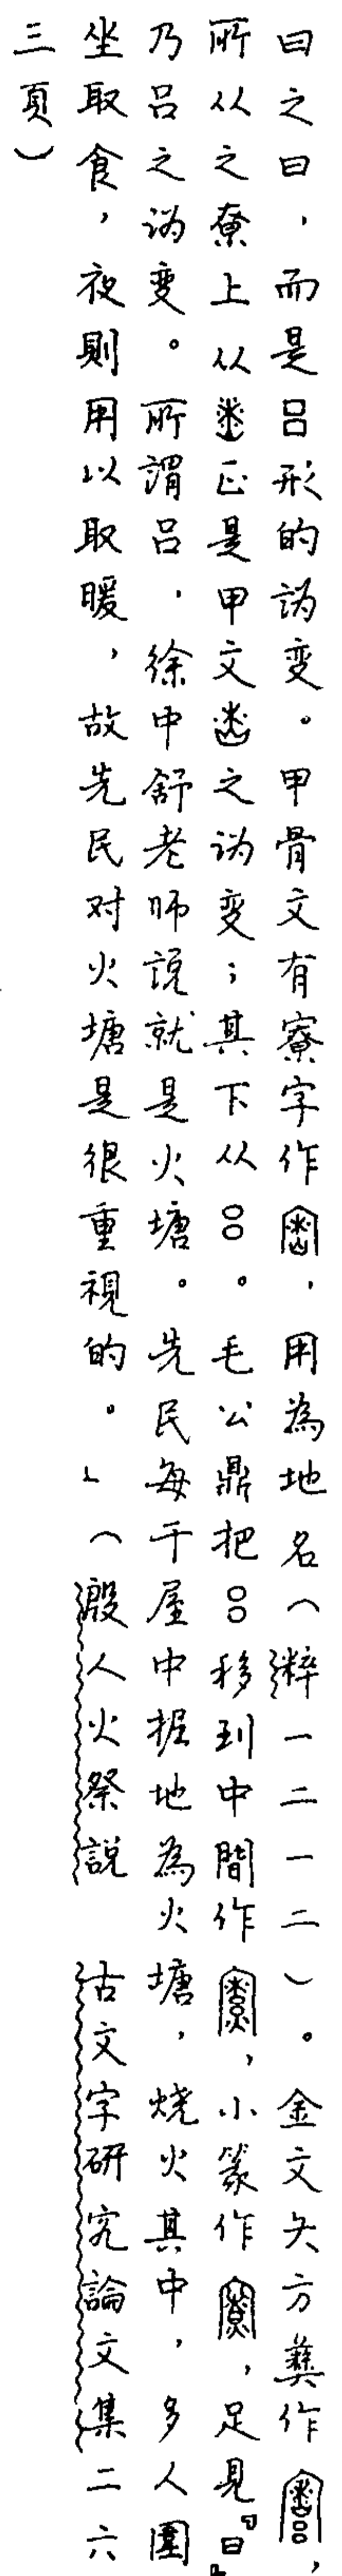 曰之曰，而是吕形的讹变。甲骨文有寮字作，用為地名（粹一二一二）。金文矢方彝作，
所从之尞上从正是甲文之讹变；其下从吕。毛公鼎把吕移到中間作，小篆作，足見『日』
乃吕之讹变。所謂吕，徐中舒老师説就是火塘。先民每于屋中掘地為火塘，烧火其中，多人圍
坐取食，夜則用以取暖，故先民对火塘是很重視的。」（殷人火祭説 古文字研究論文集二六
三頁）